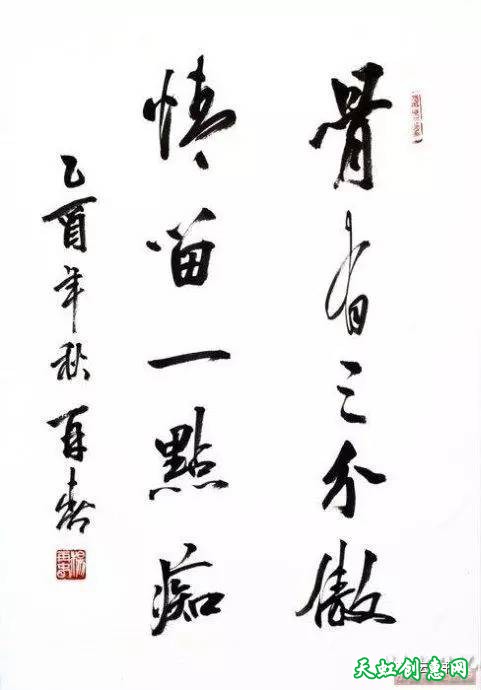 骨有三分傲
情留一點痴
乙酉年秋 再春
天虹创意网